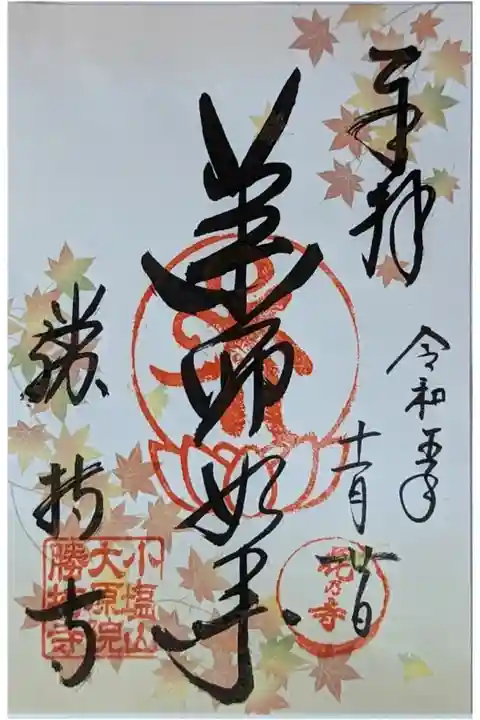 奉拝
令和五年
十一月
花乃寺
薬師如来
勝持寺
小塩山
大原院
勝持寺